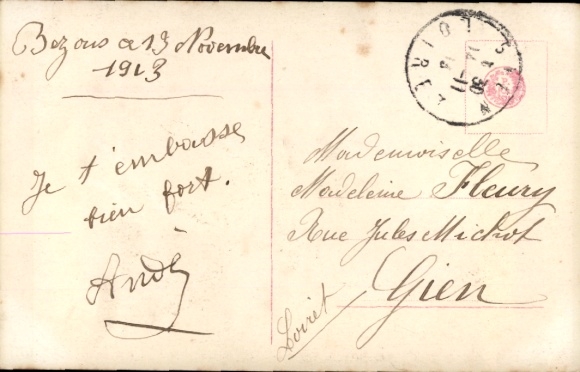 Bezons le 13 Novembre
1913
Je t'embrasse
bien fort.
André
Mademoiselle
Madeleine Fleury
Rue Jules Michot
Gien
Loiret
LOIRET